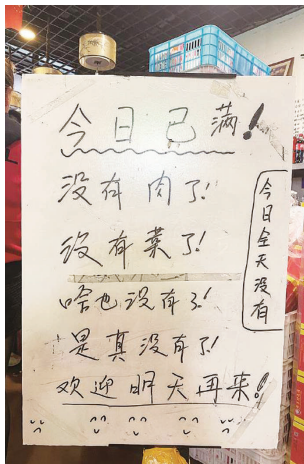 今日已满!
没有肉了!
没有菜了!
啥也没有了!
是真没有了!
欢迎明天再来!!
今日全天没有